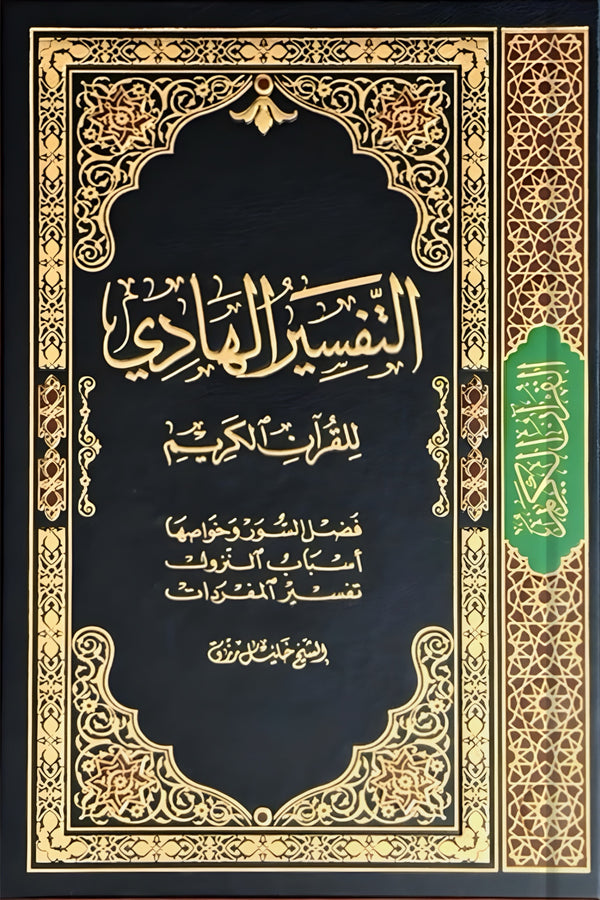 التَّفْسِيرُ الهَادِي
لِلقُرآنِ الكَرِيْمِ
فَضل السُّوَر وَخَواصها
أسبَابُ النّزول
تفسير المفردات
الشَّيخ خَليل رزق
القرآن الكريم